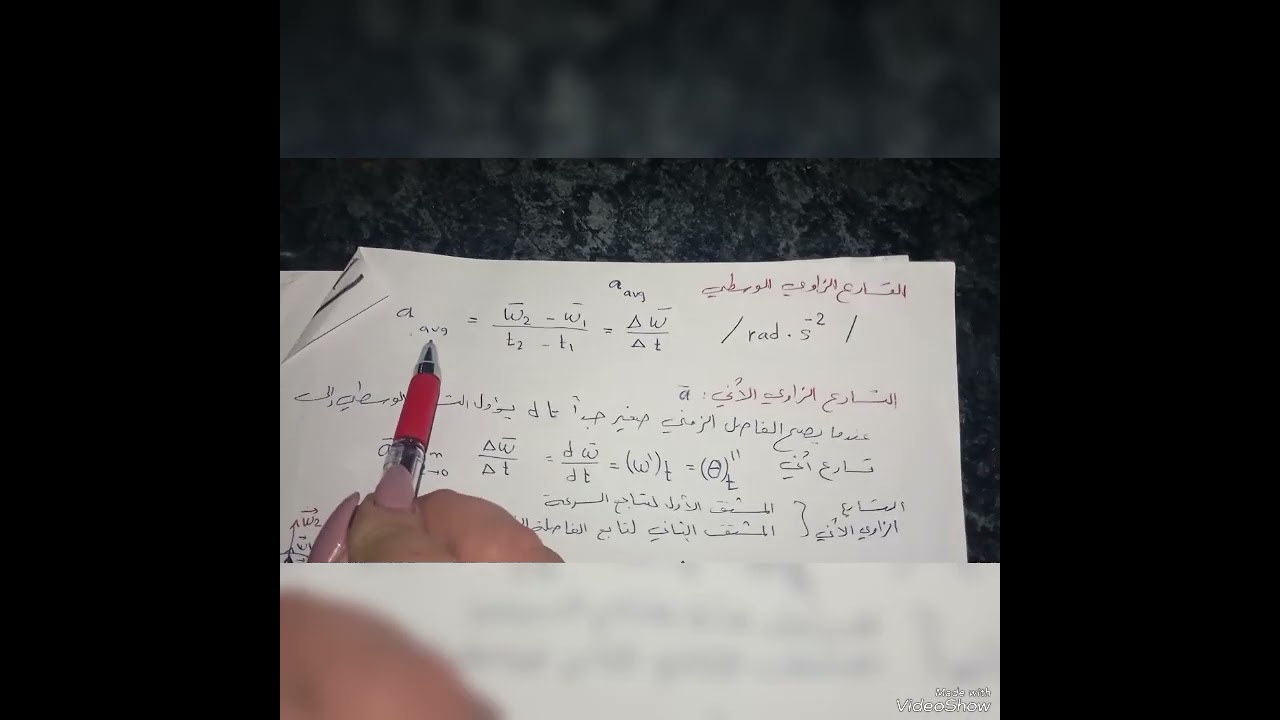 التسارع الزاوي الوسطي a avg
a avg = ω̅2 - ω̅1 / t2 - t1 = Δω̅ / Δt / rad . s⁻² /
التسارع الزاوي الآني : a̅
عندما يصبح الفاصل الزمني صغير جداً dt يؤول الوسطي إلى
تسارع آني Δω̅ / Δt = dω̅ / dt = (ω)'t = (θ)''t
التسارع الزاوي الآني { المشتق الأول لتابع السرعة
المشتق الثاني لتابع الفاصلة
ω2
Made with
VideoShow